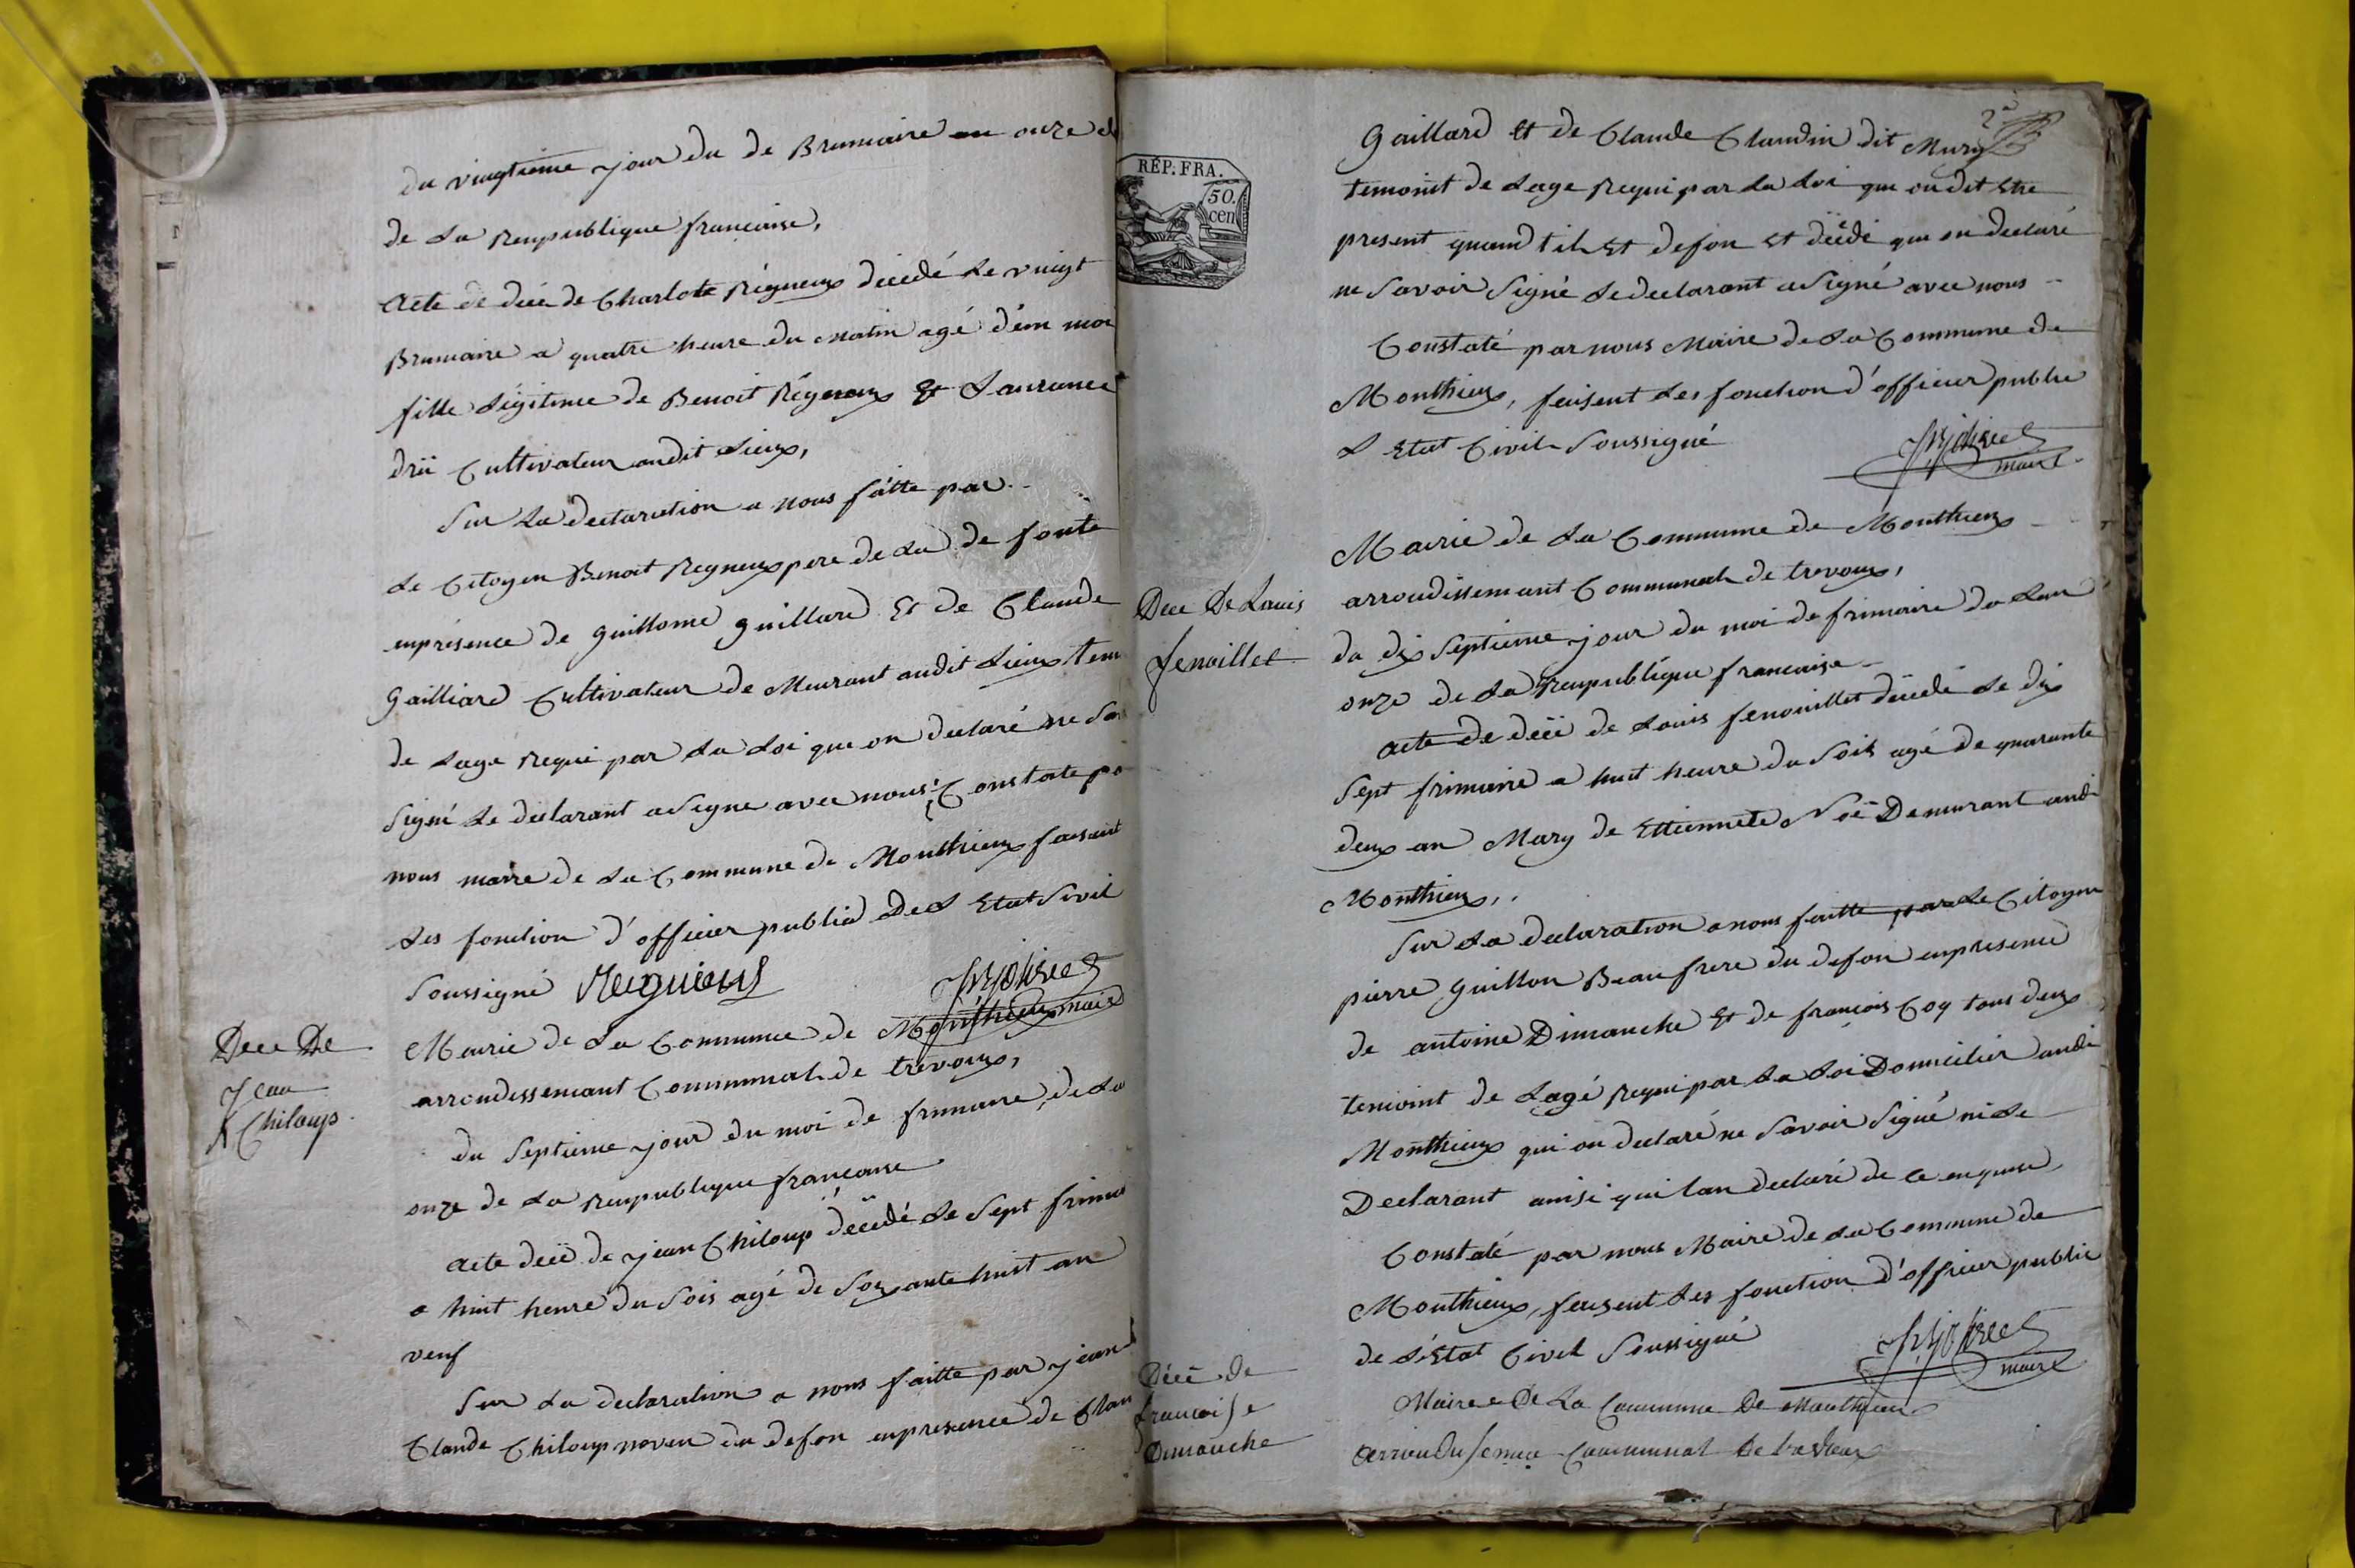 du vingtieme jour du de Brumaire an onze de
de La Reupublique francaise,
Acte de décé de Charlote Régneux décédé Le vingt
Brumaire a quatre heure du matin agé d'un moi
fille Légitime de Benoit Régneux Et Laurance
drii Cultivateur audit Lieux,
Sur La declaration a nous faitte par
Le Citoyen Benoit Regneux pere de La de fonte
enprésence de guillome guillard Et de Claude
Gailliard Cultivateur de Meurant audit Lieux tem
de Lage requi par La Loi que on declaré ne Sa
Signé Le declarant a Signe avec nous Constate pa
nous maire de La Commune de Monthieux faisant
Les fonction d'officier public De L Etat Sivil
Soussigné Reguieus
maire
Dece De
Jean
Chiloup
Mairie de La Commune de Monthieux
arrondissemant Communal de trevoux,
du Septieme jour du moi de frimaire de La
onze de La Reupublique francaise
acte décé de jean Chiloup décedé Le Sept frima
a huit heure du Soir agé de Soixante huit an
veuf
Sur La declaration a nous faitte par jean
Claude Chiloup noveu du defon enpresence de Clau
RÉP. FRA.
50.
cen
2e
Gaillard Et de Claude Claudin dit Mury
temoint de Lage Requi par La Loi que on dit Etre
present quand til Et defon Et décédé que on declaré
ne Savoir Signé Le declarant a Signé avec nous
Constaté par nous Maire de La Commune de
Monthieux, feisent Les fonction d'officier public
L Etat Civil Soussigné
maire
Dece De Louis
fenoillet
Mairie de La Commune de Monthieux
arrondissemant Communal de trevoux,
du dix Septieme jour du moi de frimaire da Lan
onze de La Reupublique francaise
acte de décé de Louis fenouillet décédé Le dix
Sept frimaire a huit heure du Soir agé de quarante
deux an Mary de Ettiennete Noë Demurant audi
Monthieux,
Sur La declaration a nous faitte par Le Citoyen
pierre Guillon Beaufrere du defon enpresence
de antoine Dimanche Et de françois Coy tous deux
temoint de Lagé Requi par La Loi Domicilier audi
Monthieux qui on declaré ne Savoir Signé ni Le
Declarant ainsi qui lan declaré de ce enquis
Constaté par nous Maire de La Commune de
Monthieux, feisent Les fonction d'officier public
de L'Etat Civil Soussigné
maire
Décé de
francoise
Dimanche
Mairee De La Commune De Monthieux
Communal De